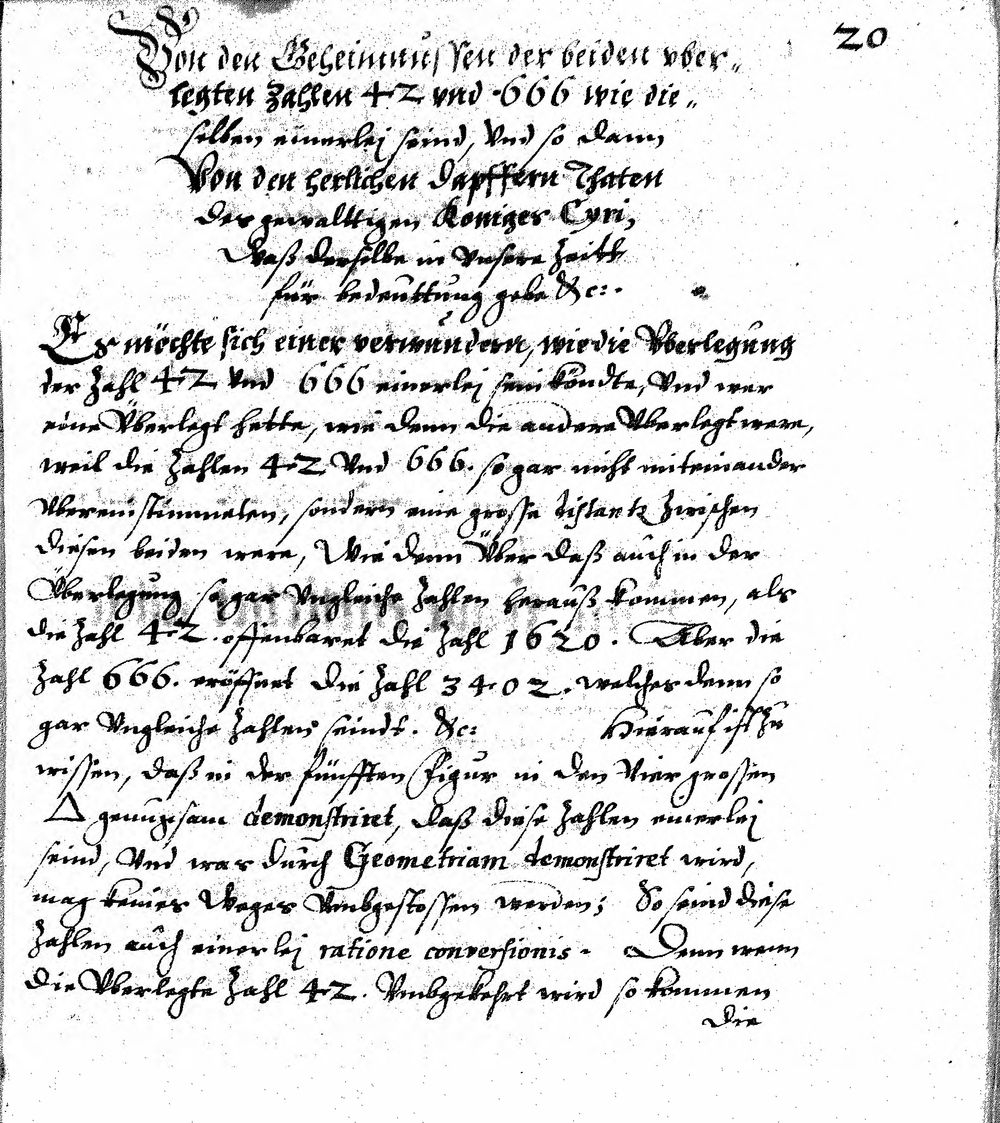 20
Von den Geheimnussen der beiden vber„
legten Zahlen 42 vnd 666 wie die„
selben einerlej seind, Vnd so dann
Von den herlichen dapffern Thaten
des gewalttigen Koniges Cyri,
Waß derselbe in Vnsere Zeitt
für bedeuttung gebe &c:.
Es möchte sich einer verwundern, wie die Vberlegung
der Zahl 42 Vnd 666 einerlej sein köndte, Vnd wer
eine Vberlegt hette, wie denn die andere Vberlegt were,
weil die Zahlen 42 Vnd 666. so gar nicht miteinander
Vbereinstimmeten, sondern eine grosse distantz Zwischen
diesen beiden were, Wie denn Über daß auch in der
Überlegung so gar Vngleiche Zahlen herauß kommen, als
die Zahl 42. offenbaret die Zahl 1620. Aber die
Zahl 666. eröffnet die Zahl 3402. welches denn so
gar Vngleiche Zahlen seindt. &c: Hierauf ist zu
wissen, daß in der fünfften Figur in den Vier grossen
△ genugsam demonstriret, daß diese Zahlen einerlej
seind, Vnd was durch Geometriam demonstriret wird,
mag keines Weges Vmbgestossen werden; So seind diese
Zahlen auch einerlej ratione conversionis. Denn wenn
die Vberlegte Zahl 42. Vmbgekehrt wird so kommen
die